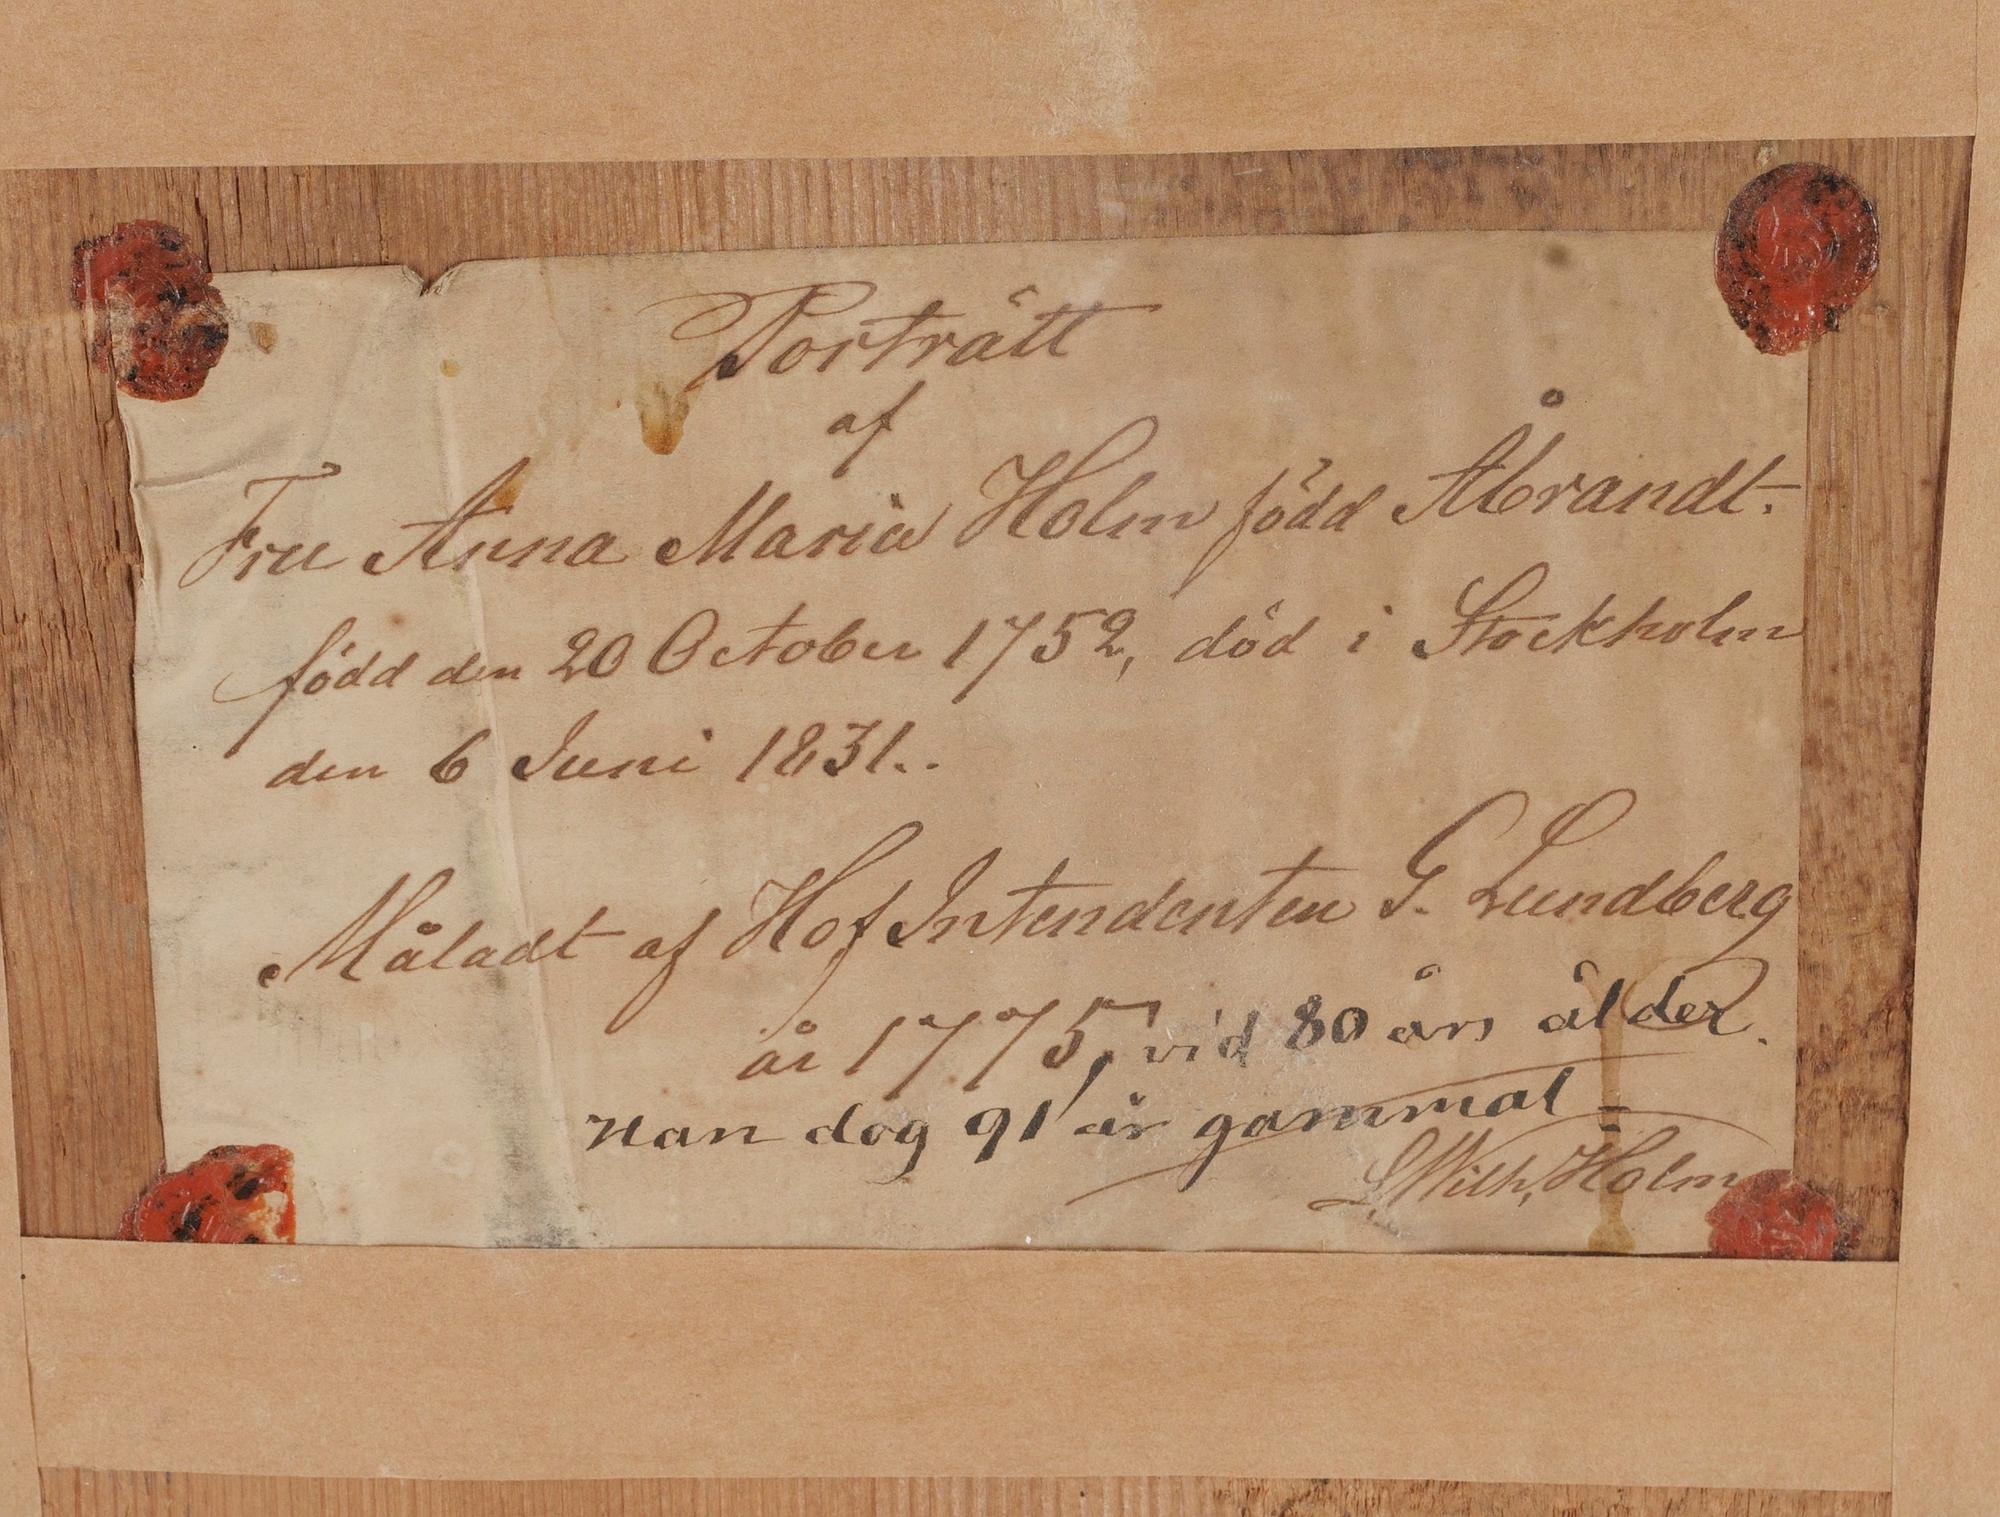 Porträtt
af
Fru Anna Maria Holm född Åbrandt.
född den 20 October 1752, död i Stockholm
den 6 Juni 1831..
Måladt af Hof Intendenten G. Lundberg
år 1775, vid 80 års ålder.
Han dog 91 år gammal
L. Wilh. Holm